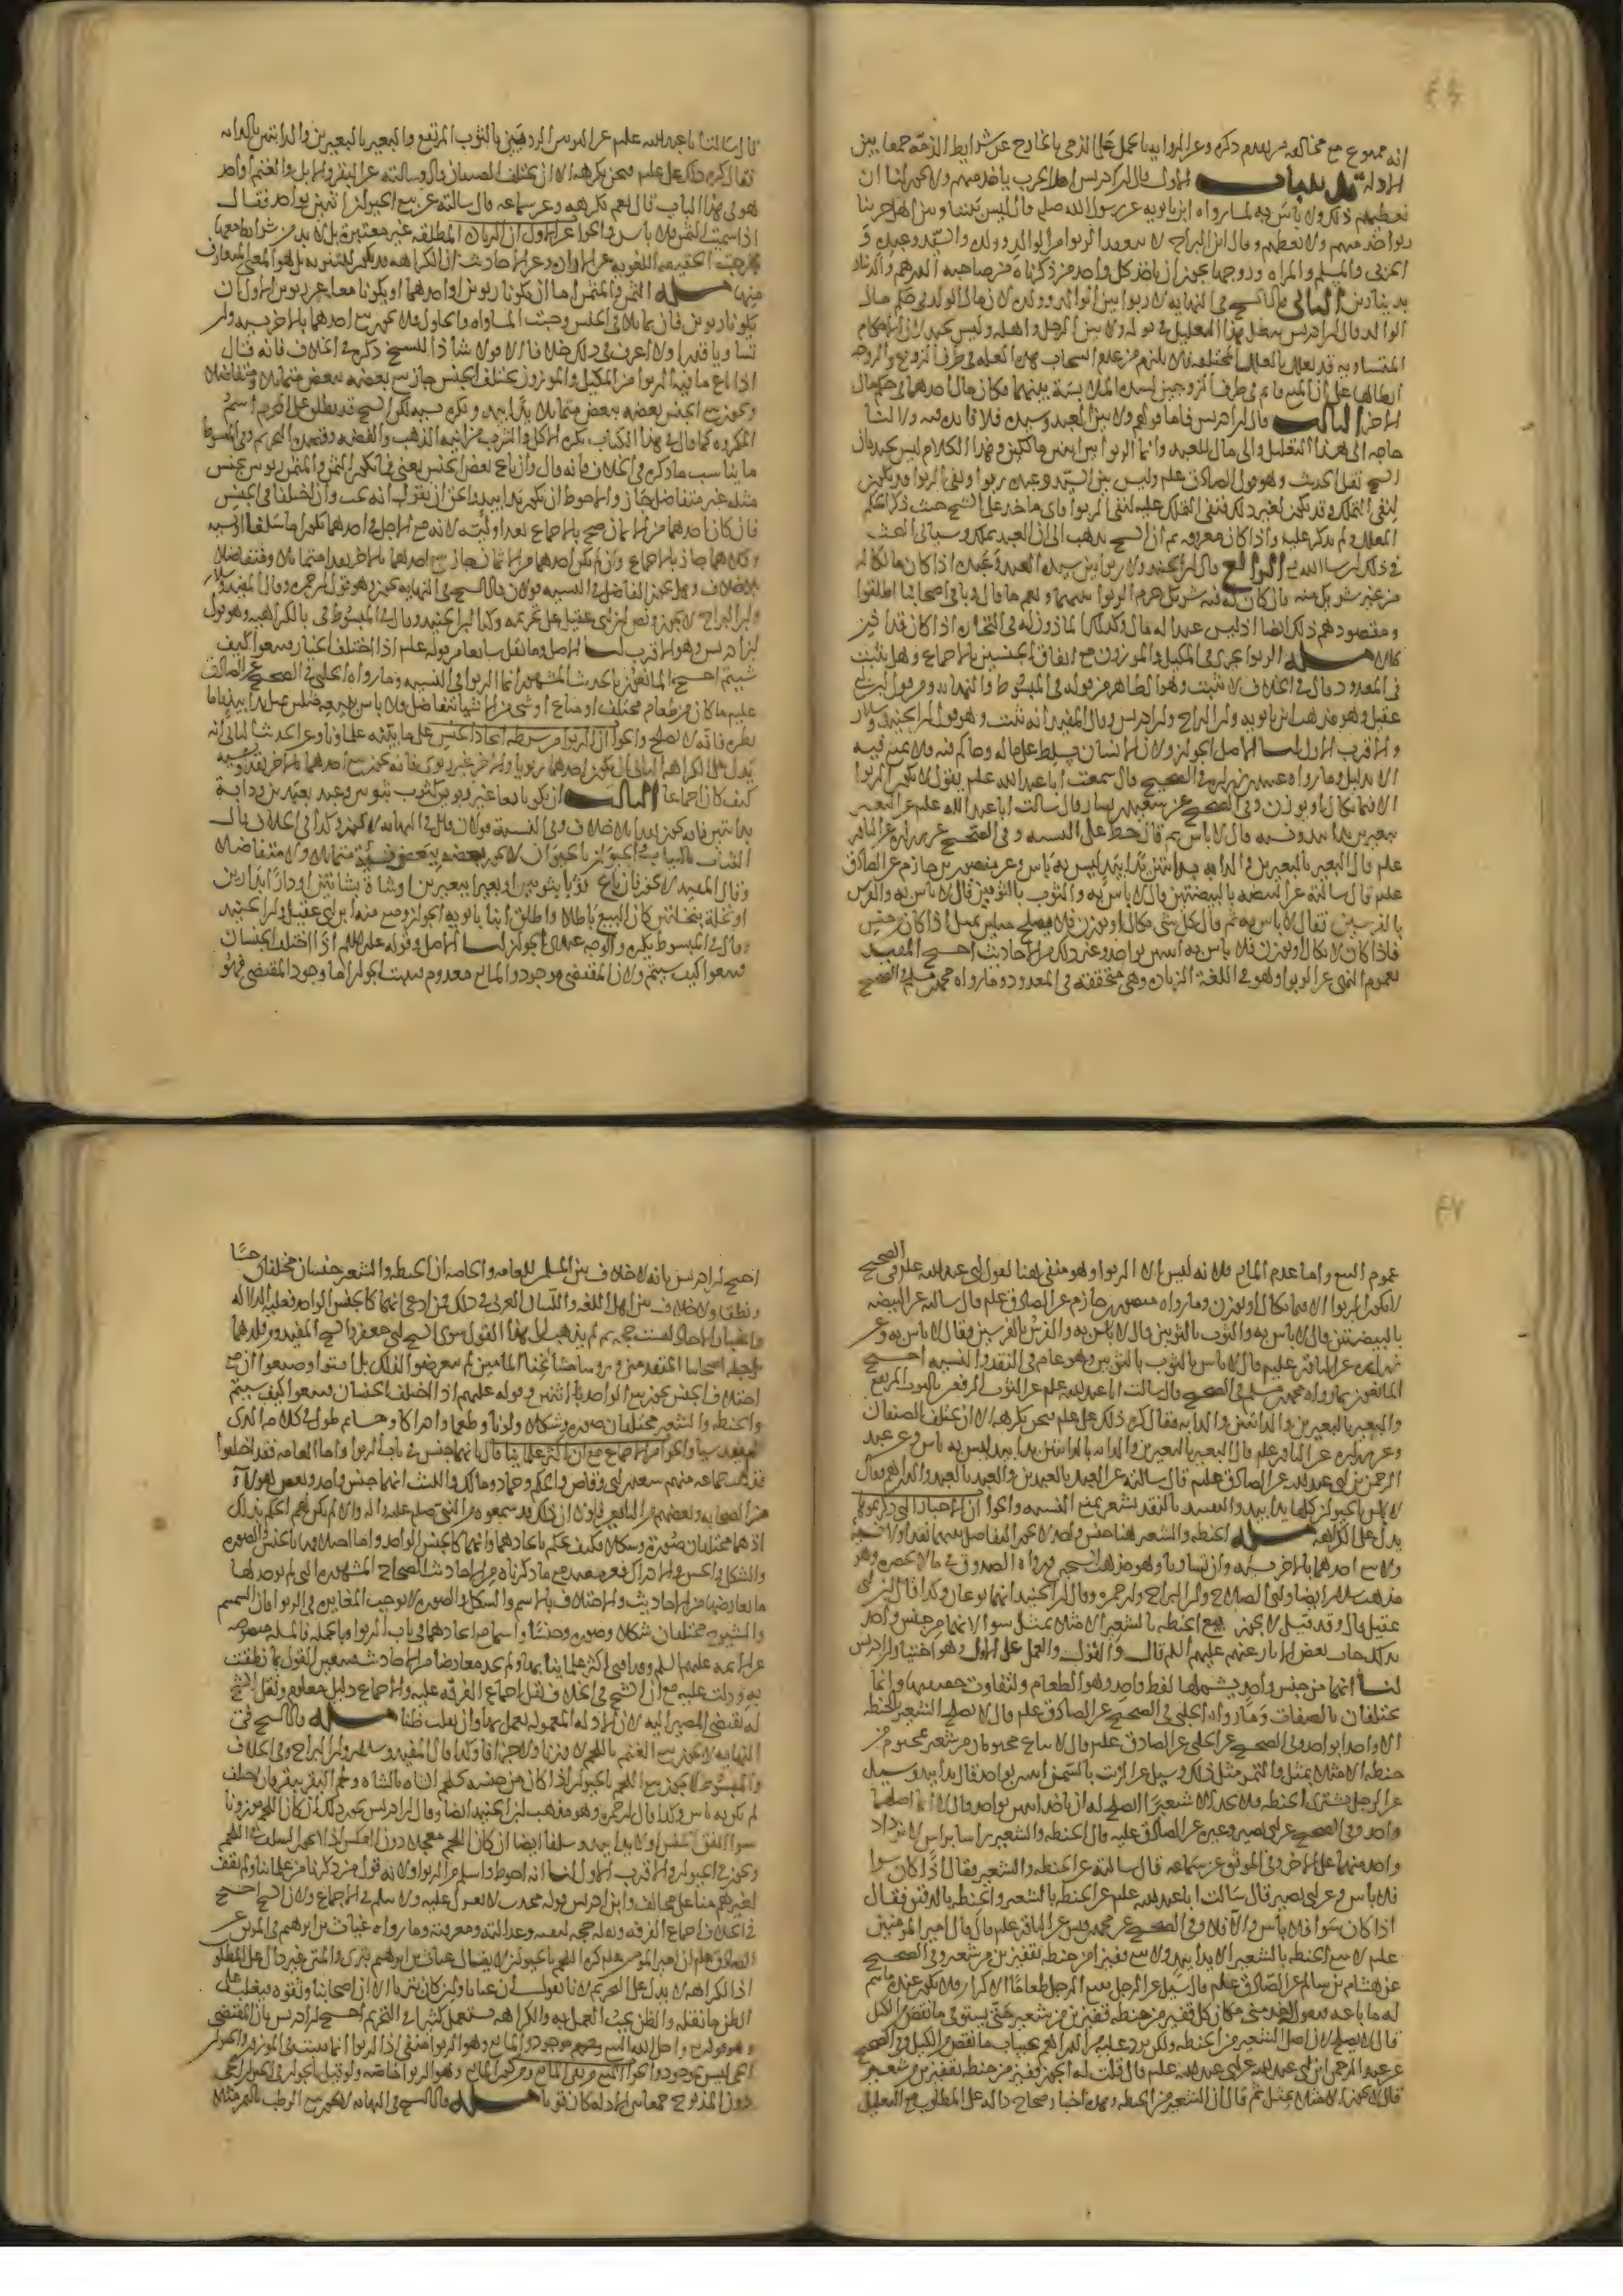 ٤٦
انه ممنوع مع مخالفه من تقدم ذكره وعن الروايه بالحمل على الذمي الخارج عن شرايط الذمة جمعا بين
الادلة تذنيبات الاول قال ابن ادريس اهل الحرب ياخذ منهم ولا يجوز لنا ان
نعطيهم ذلك ولا باس به لما رواه ابن بابويه عن رسول الله صلم قال ليس بيننا وبين اهل حربنا
ربوا ناخذ منهم ولا نعطيهم وقال ابن البراج لا ينعقد الربوا بين الوالد وولده والسيد وعبده و
الحربي والمسلم والمراه وزوجها يجوز ان ياخذ كل واحد ممن ذكرناه من صاحبه الدرهم والدينار
بدينارين الثاني قال الشيخ في النهايه لا ربوا بين الوالد وولده لان مال الولد في حكم مال
الوالد قال ابن ادريس يبطل بهذا التعليل في قوله ولا بين الرجل واهله وليس بجيد لان الاحكام
المتساويه قد تعلل بالعلل المختلفه فلا يلزم من عدم انسحاب هذه العله في طرف الزوج والزوجه
ابطالها على ان
الاخر الثالث قال ابن ادريس فاما قولهم ولا بين العبد وسيده فلا فائده فيه ولا لنا
حاجه الى هذا التعليل والى مال للعبد وانما الربوا بين اثنين مالكين وهذا الكلام ليس بجيد فان
الشيخ نقل الحديث وهو قول الصادق علم وليس بين السيد وعبده ربوا ونفي الربوا قد يكون
لنفي التملك وقد يكون لغير ذلك فنفي التملك عليه لنفي الربوا فاي ماخذ على الشيخ حيث ذكر الحكم
المعلل ولم يذكر عليه واذا كان معروفه ثم ان الشيخ يذهب الى ان العبد يملك وسياتي البحث
في ذلك ان شاء الله تع الرابع قال ابن الجنيد ولا ربوا بين سيد العبد وعبده اذا كان مالكا له
من غير شريك فيه فان كان له فيه شريك حرم الربوا بينهما ونعم ما قال وباقي اصحابنا اطلقوا
ومقصودهم ذلك ايضا اذ ليس عبدا له قال وكذلك الماذون له في التجاره اذا كان
كان مسله الربوا يجري في المكيل والموزون مع اتفاق الجنسين بالاجماع وهل يثبت
في المعدود قال في الخلاف لا يثبت وهو الظاهر من قوله في المبسوط والنهايه وهو قول ابن ابي
عقيل وهو مذهب ابن بابويه وابن البراج وابن ادريس وقال المفيد انه يثبت وهو قول ابن الجنيد وسلار
والاقرب الاول لنا الاصل الجواز ولان الانسان مسلط على ماله وحاكم فيه فلا يمنع فيه
الا بدليل وما رواه عبيد بن زراره في الصحيح قال سمعت ابا عبد الله علم يقول لا يكون الربوا
الا فيما يكال او يوزن وفي الصحيح عن سعيد بن يسار قال سالت ابا عبد الله علم عن البعير
ببعيرين يدا بيد ونسيه قال لا باس ثم قال خط على النسيه وفي الصحيح عن زراره عن الباقر
علم قال البعير بالبعيرين والدابه بالدابتين يدا بيد ليس به باس وعن منصور بن حازم عن الصادق
علم قال سالته عن البيضه بالبيضتين قال لا باس به والثوب بالثوبين قال لا باس به والفرس
بالفرسين فقال لا باس به ثم قال كل شي يكال او يوزن فلا يصلح مثلين بمثل اذا كان من جنس
فاذا كان لا يكال ولا يوزن فلا باس به اثنين بواحد وغير ذلك من الاحاديث احتج المفيد
بعموم النهي عن الربوا وهو في اللغة الزياده وهي متحققه في المعدود وما رواه محمد بن مسلم في الصحيح
قال سالت ابا عبد الله علم عن الثوبين الرديين بالثوب المرتفع والبعير بالبعيرين والدابتين بالدابه
فقال كره ذلك علي علم ونحن نكرهه الا ان يختلف الصنفان قال وسالته عن البقر والابل والغنم او احد
هو في هذا الباب قال نعم نكرهه وعن سماعه قال سالته عن بيع الحيوان اثنين بواحد فقال
اذا سميت الثمن فلا باس والجواب عن الاول ان الزياده المطلقه غير معتبرة بل لا بد من شرايط معها
منها مسله الثمن والمثمن اما ان يكونا ربويين او احدهما او يكونا معا غير ربويين الاول ان
يكونا ربويين فان تماثلا في الجنس وجبت المساواه والحلول فلا يجوز بيع احدهما بالاخر نسيه وان
تساويا قدرا ولا اعرف في ذلك خلافا الا قولا شاذا للشيخ ذكره في الخلاف فانه قال
اذا باع ما فيه الربوا من المكيل والموزون مختلف الجنس جاز بيع بعضه ببعض متماثلا ومتفاضلا
ويجوز بيع الجنس بعضه ببعض متماثلا يدا بيد ويكره نسيه لكن الشيخ قد يطلق على المحرم اسم
المكروه كما قال في هذا الكتاب يكره الاكل والشرب من انيه الذهب والفضه وقصد التحريم وفي المبسوط
ما يناسب ما ذكره في الخلاف فانه قال وان باع بعض الجنس بعضه
مثله غير متفاضل جاز والاحوط ان يكون يدا بيد
فان كان احدهما من الاثمان صح بالاجماع نقدا ونسيه
وكلاهما جاز بالاجماع وان لم يكن احدهما من الاثمان جاز بيع احدهما بالاخر نقدا متماثلا ومتفاضلا
بلا خلاف وهل يجوز التفاضل في النسيه قولان قال الشيخ في النهايه يجوز وهو قول ابن حمزه وقال المفيد وسلار
وابن البراج لا يجوز ونص ابن ابي عقيل على تحريمه وكذا ابن الجنيد وقال في المبسوط بالكراهيه وهو قول
ابن ادريس وهو الاقرب لنا الاصل وما نقل شايعا من قوله علم اذا اختلف الجنسان فبيعوا كيف
شيتم احتج المانعون بالحديث المشهور انما الربوا في النسيه وما رواه الحلبي في الصحيح عن الصادق
علم ما كان من طعام مختلف او متاع او شي من الاشيا يتفاضل فلا باس ببيعه مثلين بمثل يدا بيد فاما
نظره فانه لا يصلح والجواب ان الربوا من شرطه اتحاد الجنس على ما بينه علماونا وعن الحديث الثاني انه
يدل على الكراهه الثاني ان يكون احدهما ربويا والاخر غير ربوي فانه يجوز بيع احدهما بالاخر نقدا ونسيه
كيف كان اجماعا الثالث ان يكونا معا غير ربويين كثوب بثوبين وعبد بعبدين ودابة
بدابتين فانه يجوز نقدا بلا خلاف وفي النسيه قولان قال في النهايه لا يجوز وكذا في الخلاف قال
الثياب بالثياب والحيوان بالحيوان لا يجوز بعضه ببعض نسيه متماثلا ولا متفاضلا
وقال المفيد لا يجوز فان باع ثوبا بثوبين او بعيرا ببعيرين او شاة بشاتين او دارا بدارين
او نخلة بنخلتين كان البيع باطلا واطلق ابنا بابويه الجواز ومنع منه ابن ابي عقيل وابن الجنيد
وقال في المبسوط يكره والوجه عندي الجواز لنا الاصل وقوله عليه السلم اذا اختلف الجنسان
فبيعوا كيف شيتم ولان المقتضي موجود والمانع معدوم فيثبت الجواز اما وجود المقتضي فهو
٤٧
عموم البيع واما عدم المانع فلانه ليس الا الربوا وهو منفي هنا لقول ابي عبد الله علم في الصحيح
لا يكون الربوا الا فيما يكال او يوزن وما رواه منصور بن حازم عن الصادق علم قال سالته عن البيضه
بالبيضتين قال لا باس به والثوب بالثوبين قال لا باس به والفرس بالفرسين فقال لا باس به وعن
زراره عن الباقر عليه قال لا باس بالثوب بالثوبين وهو عام في النقد والنسيه احتج
المانعون بما رواه محمد بن مسلم في الصحيح قال سالت ابا عبد الله علم عن الثوبين الرديين بالثوب المرتفع
والبعير بالبعيرين والدابتين والدابه فقال كره ذلك علي علم فنحن نكرهه الا ان يختلف الصنفان
وعن زراره عن الباقر علم قال البعير بالبعيرين والدابه بالدابتين يدا بيد ليس به باس وعن عبد
الرحمن بن ابي عبد الله عن الصادق عليم قال سالته عن العبد بالعبدين والعبد بالعبد والدراهم فقال
لا باس بالحيوان كلها يدا بيد والتقييد بالنقد يشعر بمنع النسيه والجواب ان الاخبار التي ذكرتموها
يدل على الكراهه مسله الحنطه والشعير هنا جنس واحد لا يجوز التفاضل بينهما نقدا ولا نسيه
ولا بيع احدهما بالاخر نسيه وان تساويا وهو مذهب الشيخ ورواه الصدوق في من لا يحضره وهو
مذهب سلار ايضا وابي الصلاح وابن البراج وابن حمزه وقال ابن الجنيد انهما نوعان وكذا قال ابن ابي
عقيل قال وقد قيل لا يجوز بيع الحنطه بالشعير الا مثلا بمثل سوا لانهما من جنس واحد
بذلك جات بعض الاخبار عنهم عليهم السلم قال والقول والعمل على الاول وهو اختيار ابن ادريس
لنا انهما من جنس واحد يشملها لفظ واحد وهو الطعام
مختلفان بالصفات وما رواه الحلبي في الصحيح عن الصادق علم قال لا يصلح الشعير بالحنطه
الا واحدا بواحد وفي الصحيح عن الحلبي عن الصادق علم قال لا يباع مختومان من شعير بمختوم من
حنطه الا مثلا بمثل والتمر مثل ذلك وسيل عن الزيت بالسمن اثنين بواحد قال يدا بيد وسيل
عن الرجل يشتري الحنطه فلا يجد الا شعيرا ايصلح له ان ياخذ اثنين بواحد قال لا انما اصلهما
واحد وفي الصحيح عن ابي بصير وغيره عن الصادق عليه قال الحنطه والشعير راسا براس لا يزداد
واحد منهما على الاخر وفي الموثق عن سماعه قال سالته عن الحنطه والشعير فقال اذا كان سوا
فلا باس وعن ابي بصير قال سالت ابا عبد الله علم عن الحنطه بالشعير والحنطه بالدقيق فقال
اذا كان سوا فلا باس والا فلا وفي الصحيح عن محمد بن قيس عن الباقر علم قال قال امير المومنين
علم لا تبع الحنطه بالشعير الا يدا بيد ولا تبع قفيزا من حنطه بقفيزين من شعير وفي الصحيح
عن هشام بن سالم عن الصادق علم قال سيل عن الرجل يبيع الرجل طعاما الاكرار فلا يكون عنده ما يتم
له ما باعه فيقول خذ مني مكان كل قفيز من حنطه قفيزين من شعير حتى يستوفي ما نقص من الكيل
قال لا يصلح لان اصل الشعير من الحنطه ولكن يرد عليه من الدراهم بحساب ما نقص من الكيل وفي الصحيح
عن عبد الرحمن بن ابي عبد الله عن ابي عبد الله علم قال قلت له ايجوز قفيز من حنطه بقفيزين من شعير
قال لا يجوز الا مثلا بمثل ثم قال ان الشعير من الحنطه وهذه اخبار صحاح داله على المطلوب مع التعليل
احتج ابن ادريس بانه لا خلاف بين المسلمين العامه والخاصه ان الحنطه والشعير جنسان مختلفان حسا
ونطقا ولا خلاف بين اهل اللغه واللسان العربي في ذلك فمن ادعى انهما كالجنس الواحد فعليه الدلاله
واخبار الاحاد ليست حجه ثم لم يذهب الى هذا القول سوى الشيخ ابي جعفر والشيخ المفيد ومن قلدهما
بل جله اصحابنا المتقدمين وروسا مشايخنا الماضين لم يتعرضوا لذلك بل افتوا وصنعوا ان مع
اختلاف الجنس يجوز بيع الواحد باثنين وقوله عليهم اذا اختلف الجنسان فبيعوا كيف شيتم
والحنطه والشعير مختلفان صوره وشكلا ولونا وطعما وادراكا وحسا
والجواب الاجماع مع ان اكثر علماينا قال بانهما جنس في باب الربوا واما العامه فقد اختلفوا
فقالت جماعه منهم سعد بن ابي وقاص والحكم وحماد ومالك والليث انهما جنس واحد وبعض هولاء
من الصحابه وبعضهم من التابعين
اذ هما مختلفان صورة وشكلا فكيف يحكم باتحادهما وانهما كالجنس الواحد واما اختلافهما بالجنس والصوره
والشكل والحس والادراك فغير مفيد مع ما ذكرناه من الاحاديث الصحاح المشهوره التي لم يوجد لها
ما يعارضها من الاحاديث والاختلاف بالاسم والشكل والصوره لا يوجب التغاير في الربوا فان السمسم
والشيرج مختلفان شكلا وصوره وحسا واسما مع اتحادهما في باب الربوا وبالجمله فالمسله منصوصه
عن الايمه عليهم السلم وقد افتى اكثر علماينا بها ولم يجد معارضا من الاحاديث فتعين القول بما نطقت
به ودلت عليه مع ان الشيخ في الخلاف نقل اجماع الفرقه عليه والاجماع دليل معلوم ونقل الشيخ
له يقتضي المصير اليه لان الادله المعموله يعمل بها وان يغلب ظنا مسله قال الشيخ في
النهايه لا يجوز بيع الغنم باللحم لا وزنا ولا جزافا وكذا قال المفيد وسلار وابن البراج وفي الخلاف
والمبسوط لا يجوز بيع اللحم بالحيوان اذا كان من جنسه كلحم الشاه بالشاه ولحم البقر ببقر فان اختلف
لم يكن به باس وكذا قال ابن حمزه وهو مذهب ابن الجنيد ايضا وقال ابن ادريس يجوز ذلك ان كان اللحم موزونا
سوا اتفق الجنس اولا يدا بيد وسلفا ايضا ان كان اللحم معجلا دون العكس
ويجوز في الحيوان والاقرب الاول لنا انه احوط واسلم من الربوا ولانه قول من ذكرنا من علماينا ولم نقف
لغيرهم منا على مخالف وابن ادريس قوله محدث لا نعول عليه ولا يثلم في الاجماع ولان الشيخ احتج
في الخلاف باجماع الفرقه ونقله حجه لثقته وعدالته ومعرفته وما رواه غياث بن ابراهيم في الموثق عن
الصادق علم ان امير المومنين علم كره اللحم بالحيوان لا يقال غياث بن ابراهيم بتري والمتن غير دال على المطلوب
اذ الكراهه لا يدل على التحريم لانا نقول ان غياثا وان كان بتريا الا ان اصحابنا وثقوه فيغلب على
الظن ما نقله والظن يجب العمل به والكراهه يستعمل كثيرا في التحريم احتج ابن ادريس بان المقتضي
وهو قوله تع واحل الله البيع وحرم موجود والمانع وهو الربوا منفي اذ الربوا انما يثبت في الموزون والحيوان
الحي ليس بموزون والجواب المنع من نفي المانع
دون المذبوح جمعا بين الادله كان قويا مسله قال الشيخ في النهايه لا يجوز بيع الرطب بالتمر مثلا